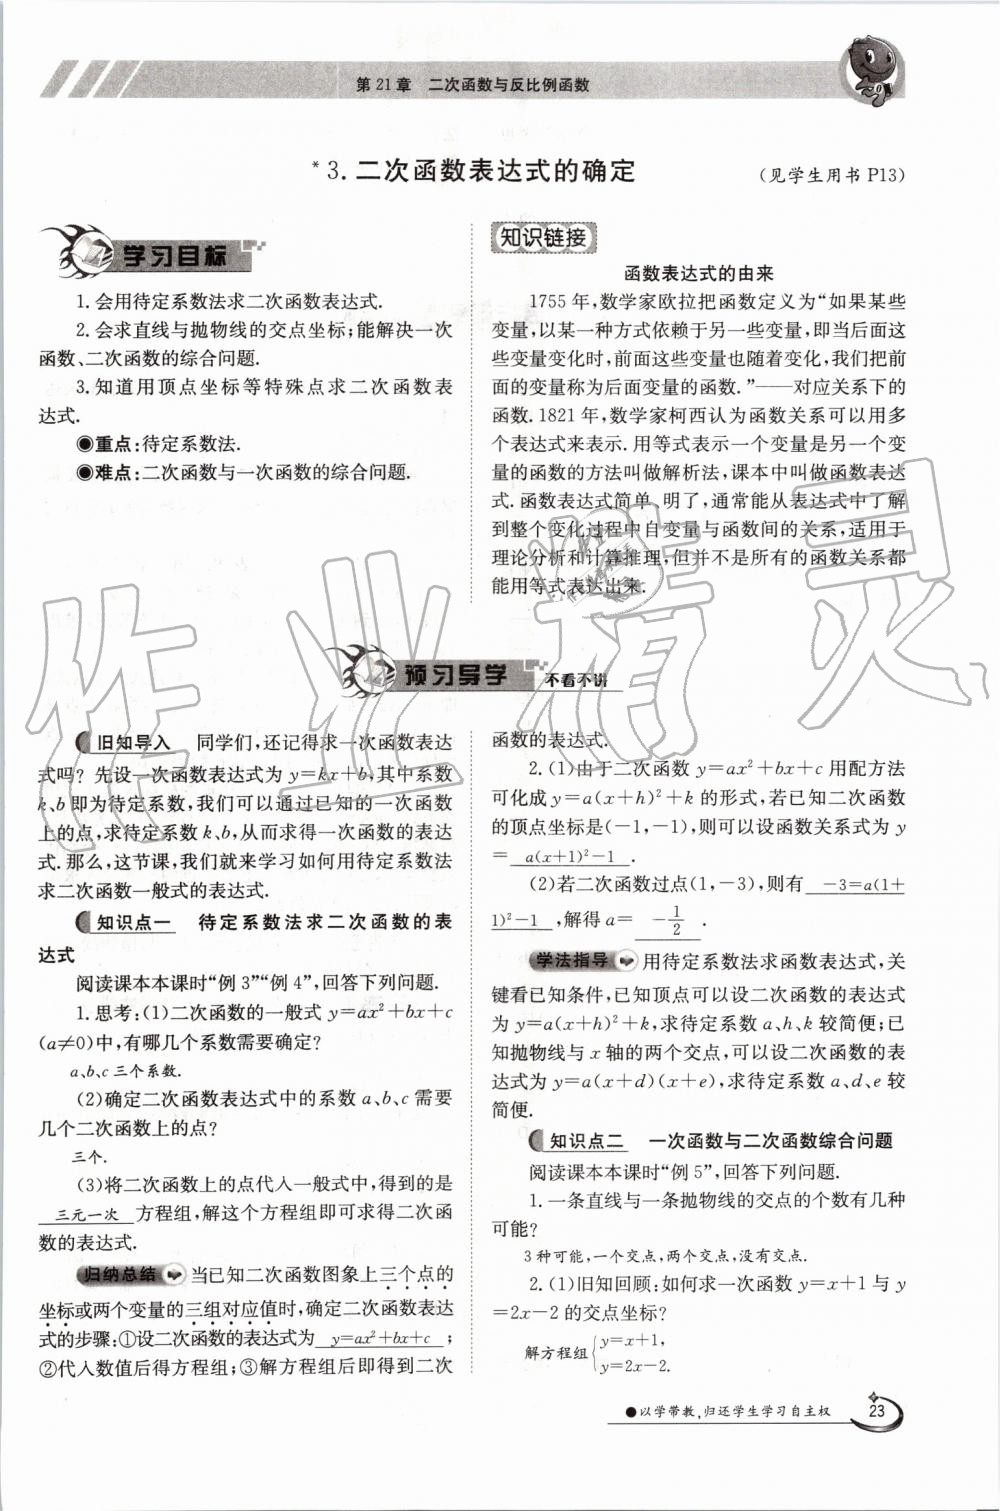 第21章 二次函数与反比例函数
*3.二次函数表达式的确定
(见学生用书 P13)
学习目标
1.会用待定系数法求二次函数表达式.
2.会求直线与抛物线的交点坐标;能解决一次
函数、二次函数的综合问题.
3.知道用顶点坐标等特殊点求二次函数表
达式.
●重点:待定系数法.
●难点:二次函数与一次函数的综合问题.
知识链接
函数表达式的由来
1755年,数学家欧拉把函数定义为“如果某些
变量,以某一种方式依赖于另一些变量,即当后面这
些变量变化时,前面这些变量也随着变化,我们把前
面的变量称为后面变量的函数.”——对应关系下的
函数.1821年,数学家柯西认为函数关系可以用多
个表达式来表示.用等式表示一个变量是另一个变
量的函数的方法叫做解析法,课本中叫做函数表达
式.函数表达式简单、明了,通常能从表达式中了解
到整个变化过程中自变量与函数间的关系,适用于
理论分析和计算推理,但并不是所有的函数关系都
能用等式表达出来.
预习导学 不看不讲
旧知导入 同学们,还记得求一次函数表达
式吗?先设一次函数表达式为y=kx+b,其中系数
k、b即为待定系数,我们可以通过已知的一次函数
上的点,求待定系数k、b,从而求得一次函数的表达
式.那么,这节课,我们就来学习如何用待定系数法
求二次函数一般式的表达式.
知识点一 待定系数法求二次函数的表
达式
阅读课本本课时“例3”“例4”,回答下列问题.
1.思考:(1)二次函数的一般式y=ax²+bx+c
(a≠0)中,有哪几个系数需要确定?
a、b、c三个系数.
(2)确定二次函数表达式中的系数a、b、c需要
几个二次函数上的点?
三个.
(3)将二次函数上的点代入一般式中,得到的是
三元一次 方程组,解这个方程组即可求得二次函
数的表达式.
归纳总结 当已知二次函数图象上三个点的
坐标或两个变量的三组对应值时,确定二次函数表达
式的步骤:①设二次函数的表达式为 y=ax²+bx+c ;
②代入数值后得方程组;③解方程组后即得到二次
函数的表达式.
2.(1)由于二次函数y=ax²+bx+c用配方法
可化成y=a(x+h)²+k的形式,若已知二次函数
的顶点坐标是(-1,-1),则可以设函数关系式为y
= a(x+1)²-1 .
(2)若二次函数过点(1,-3),则有 -3=a(1+
1)²-1 ,解得a= -1/2 .
学法指导 用待定系数法求函数表达式,关
键看已知条件,已知顶点可以设二次函数的表达式
为y=a(x+h)²+k,求待定系数a、h、k较简便;已
知抛物线与x轴的两个交点,可以设二次函数的表
达式为y=a(x+d)(x+e),求待定系数a、d、e较
简便.
知识点二 一次函数与二次函数综合问题
阅读课本本课时“例5”,回答下列问题.
1.一条直线与一条抛物线的交点的个数有几种
可能?
3种可能,一个交点,两个交点,没有交点.
2.(1)旧知回顾:如何求一次函数y=x+1与y
=2x-2的交点坐标?
解方程组{y=x+1,
y=2x-2.
●以学带教,归还学生学习自主权
23
作业精灵